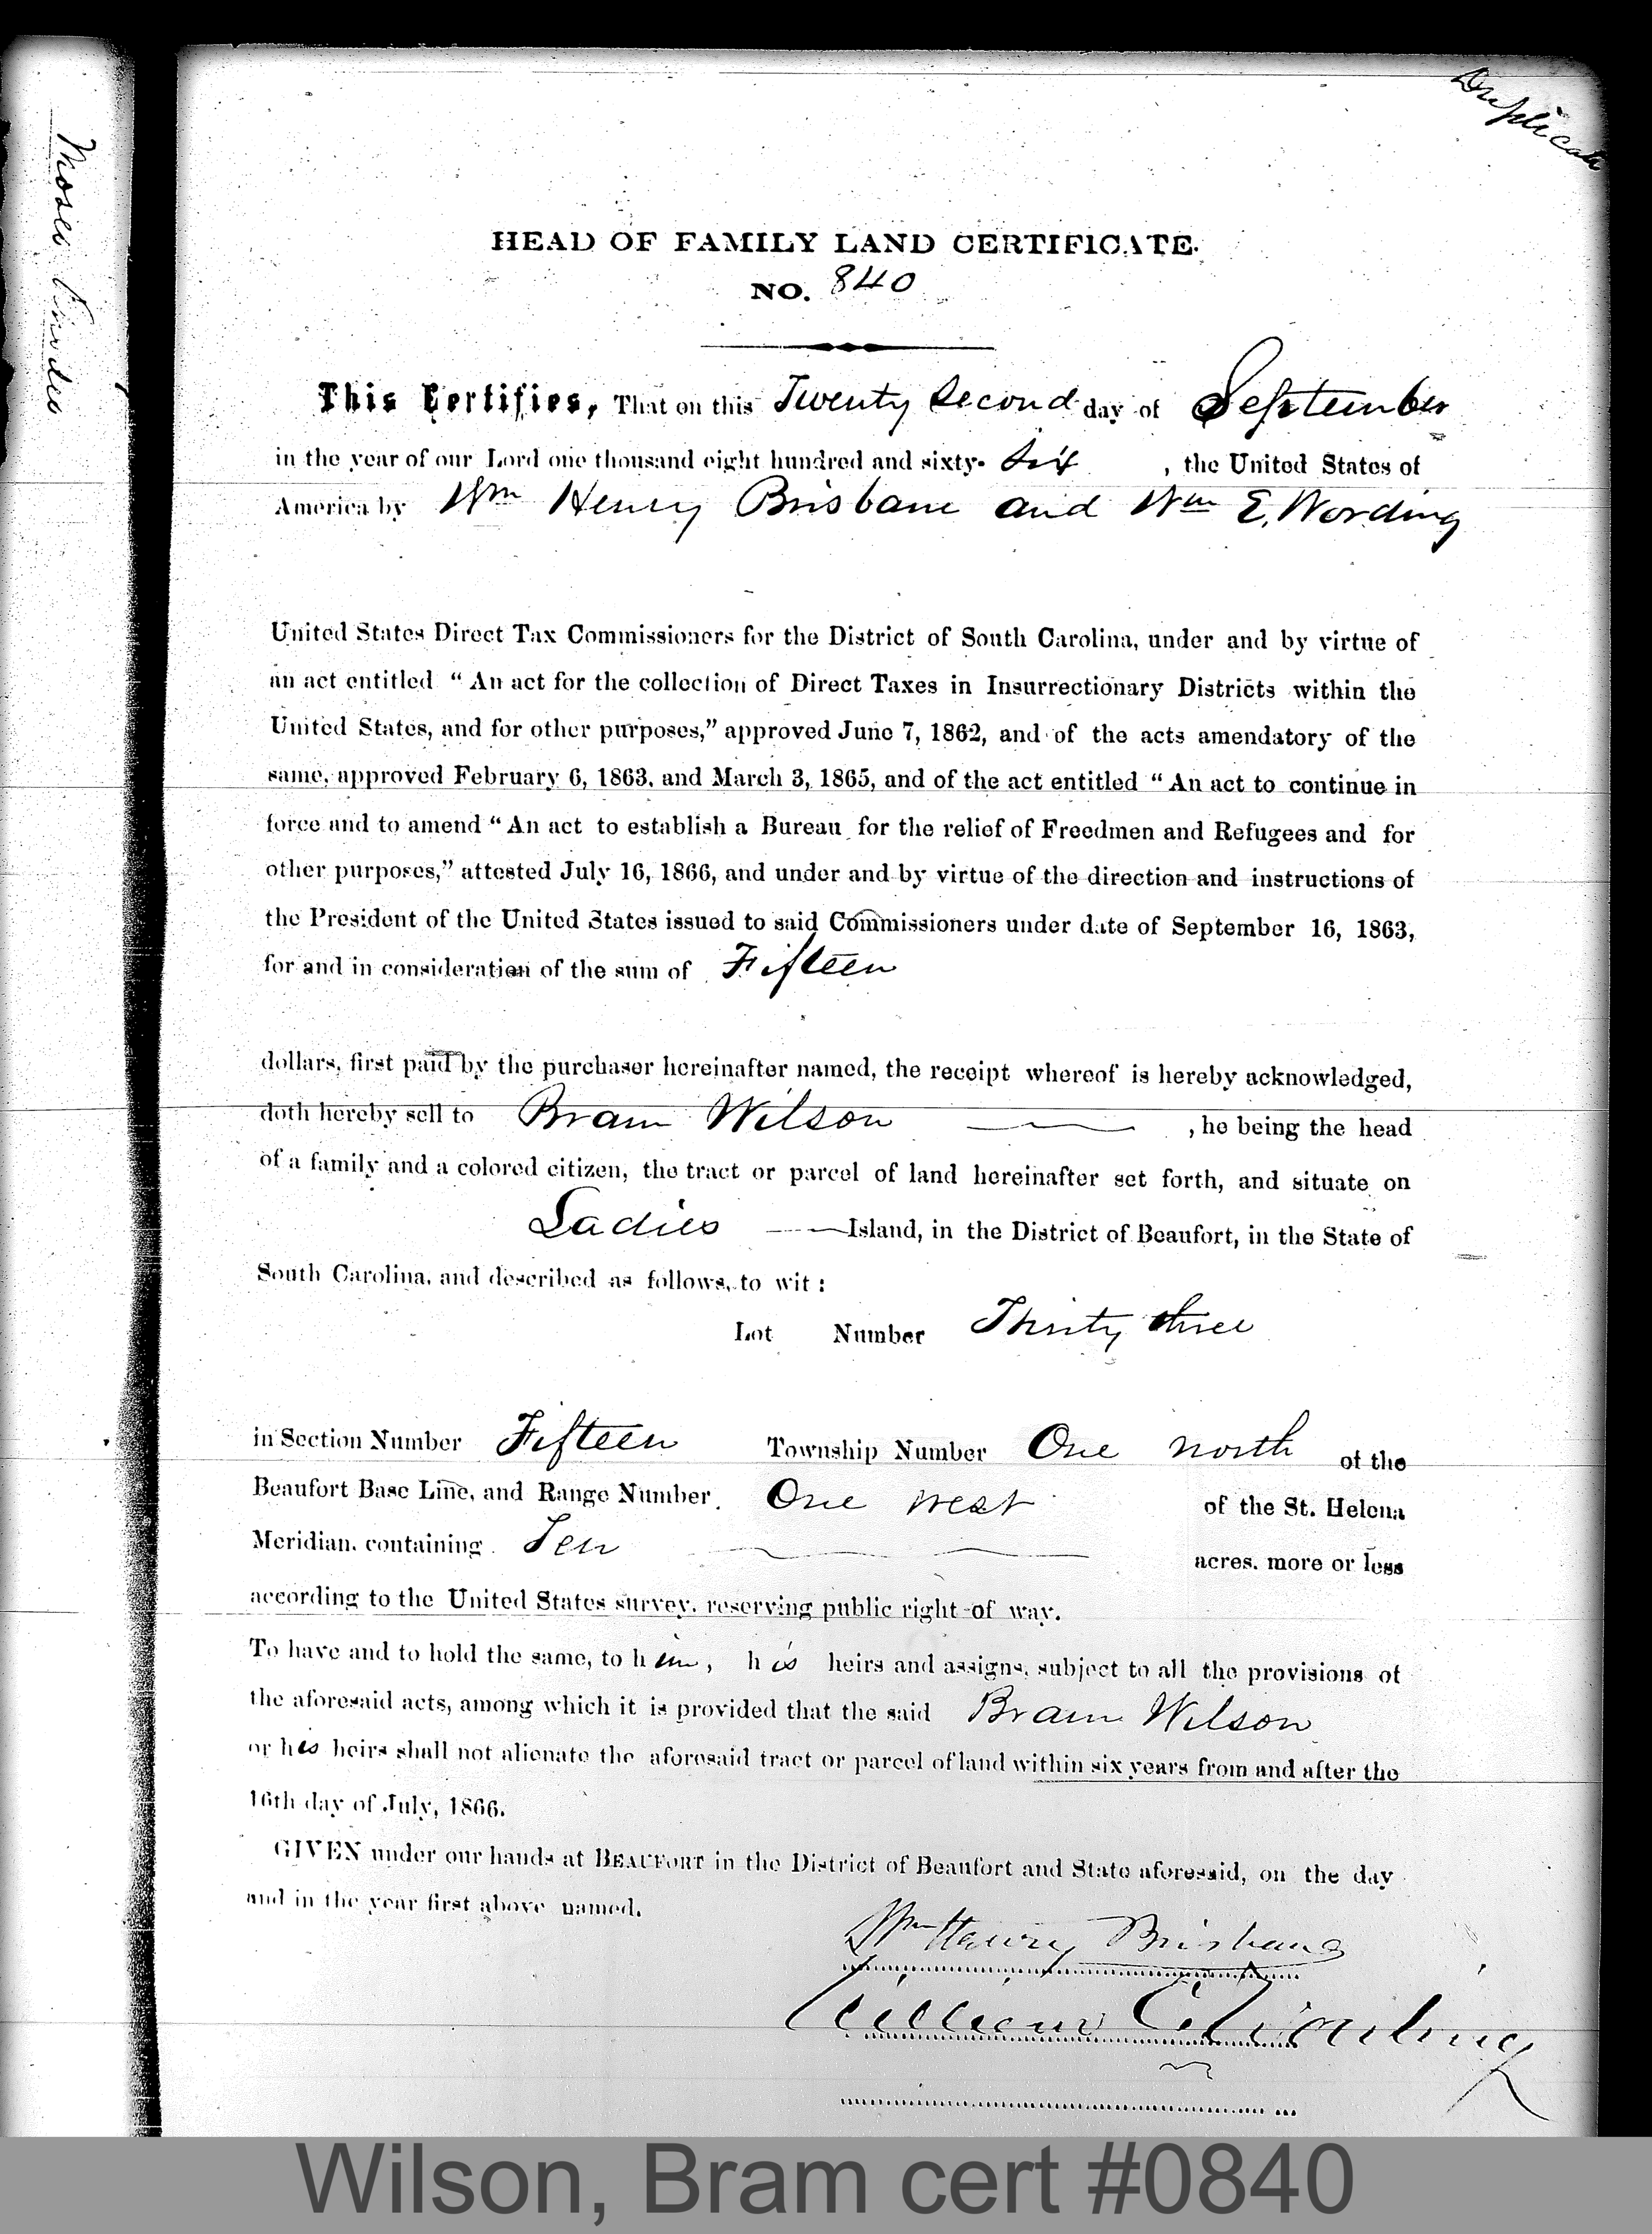 Duplicate
Moses
HEAD OF FAMILY LAND CERTIFICATE.
NO. 840
This Certifies, That on this Twenty Second day of September
in the year of our Lord one thousand eight hundred and sixty- Six , the United States of
America by Wm Henry Brisbane and Wm E. Wording
United States Direct Tax Commissioners for the District of South Carolina, under and by virtue of
an act entitled "An act for the collection of Direct Taxes in Insurrectionary Districts within the
United States, and for other purposes," approved June 7, 1862, and of the acts amendatory of the
same, approved February 6, 1863, and March 3, 1865, and of the act entitled "An act to continue in
force and to amend "An act to establish a Bureau for the relief of Freedmen and Refugees and for
other purposes," attested July 16, 1866, and under and by virtue of the direction and instructions of
the President of the United States issued to said Commissioners under date of September 16, 1863,
for and in consideration of the sum of Fifteen
dollars, first paid by the purchaser hereinafter named, the receipt whereof is hereby acknowledged,
doth hereby sell to Bram Wilson , he being the head
of a family and a colored citizen, the tract or parcel of land hereinafter set forth, and situate on
Ladies Island, in the District of Beaufort, in the State of
South Carolina, and described as follows, to wit:
Lot Number Thirty three
in Section Number Fifteen Township Number One north of the
Beaufort Base Line, and Range Number One west of the St. Helena
Meridian, containing Ten acres, more or less
according to the United States survey, reserving public right of way.
To have and to hold the same, to him, his heirs and assigns, subject to all the provisions of
the aforesaid acts, among which it is provided that the said Bram Wilson
or his heirs shall not alienate the aforesaid tract or parcel of land within six years from and after the
16th day of July, 1866.
GIVEN under our hands at BEAUFORT in the District of Beaufort and State aforesaid, on the day
and in the year first above named.
Wm Henry Brisbane
William E. Wording
Wilson, Bram cert #0840